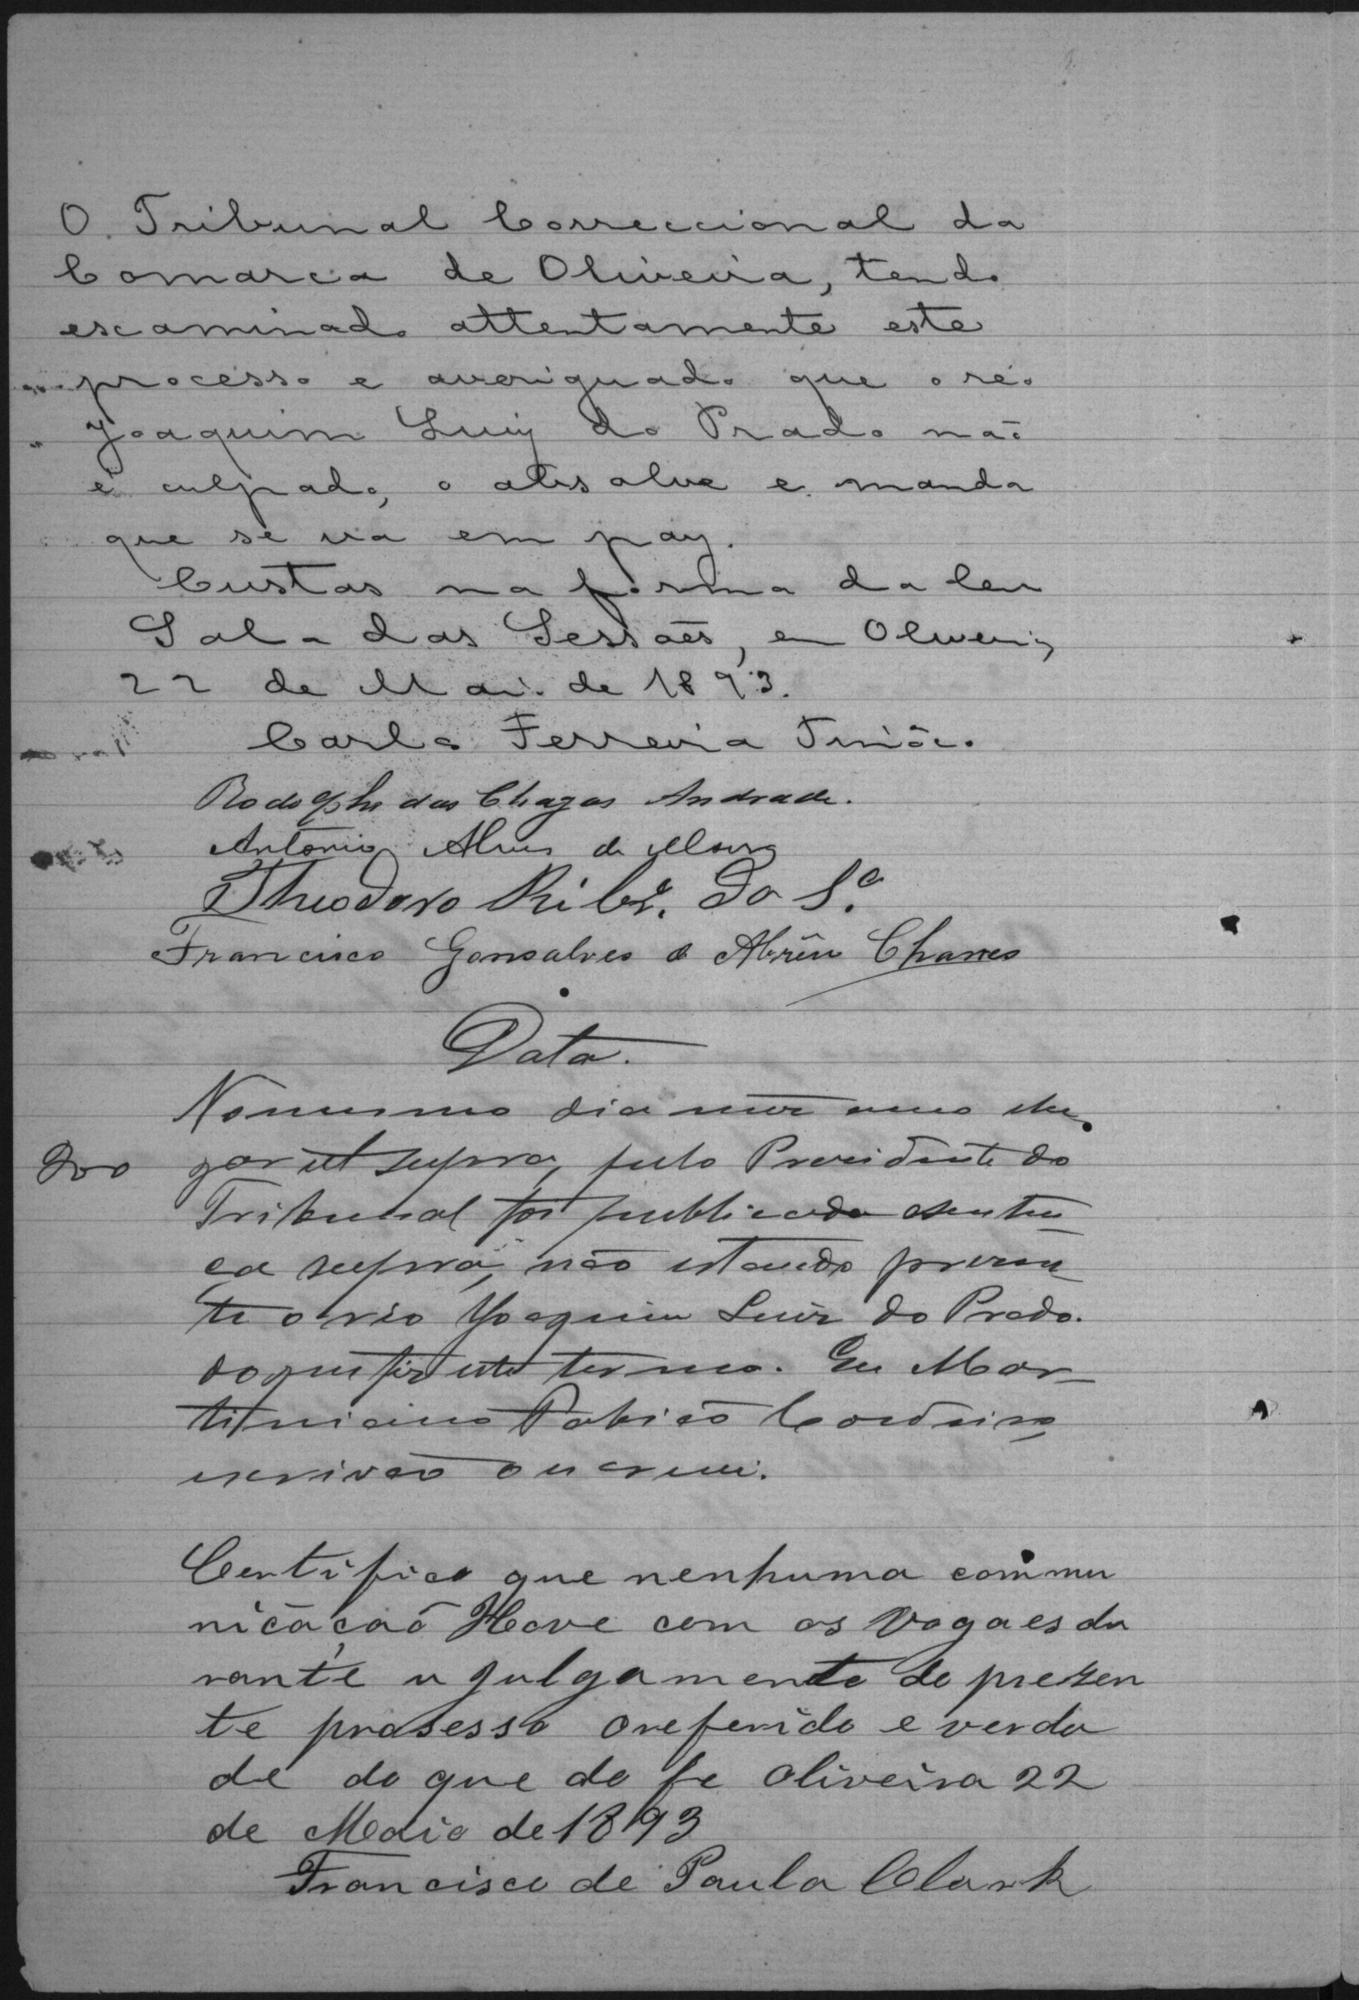 O Tribunal Correccional da
Comarca de Oliveira, tendo
escaminado attentamente este
processo e averiguado que o réo
Joaquim Luiz do Prado não
é culpado, o absolve e manda
que se va em paz.
Custas na forma da lei
Sala das Sessões, em Oliveira,
22 de Maio de 1893.
Carlo Ferreira Tinôco
Rodolpho das Chagas Andrade.
Antonio Alves de Moura
Theodoro Ribrº. da Sª.
Francisco Gonsalves d Abrêu Chaves
Data.
No mesmo dia mez anno e lu
gar ut supra, pelo Presidente do
Tribunal foi publicada a senten
ça supra, não estando presen
te o réo Joaquim Luiz do Prado.
do que fiz este termo. Eu Mar
tiniano Cordeiro
escrivão o escrevi.
Certifico que nenhuma commu
nicação Hove com os Vogaes du
rante u julgamento do prezen
te prosesso o referido e verda
de do que do fe Oliveira 22
de Maio de 1893
Francisco de Paula Clark